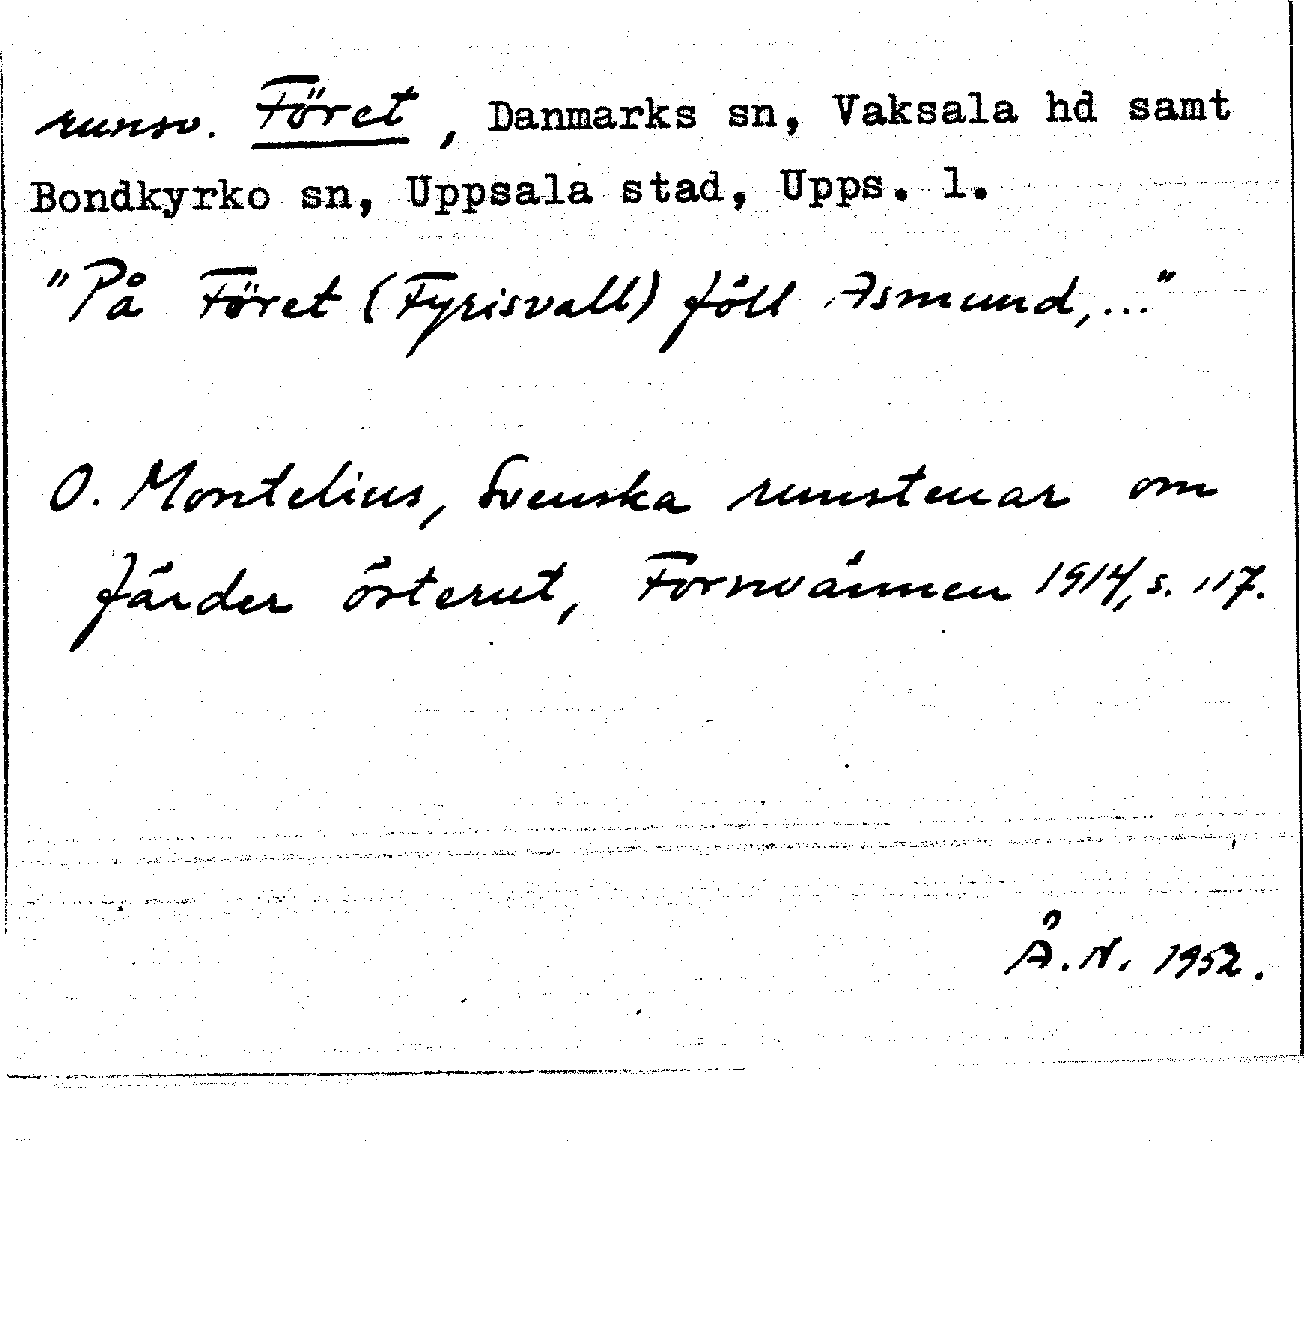 runsv. Föret, Danmarks sn, Vaksala hd samt
Bondkyrko sn, Uppsala stad, Upps. l.
"På Föret (Fyrisvall) föll Asmund,..."
O. Montelius, Svenska runstenar om
färder österut, Fornvännen 1914, s. 117.
Å.N. 1952.